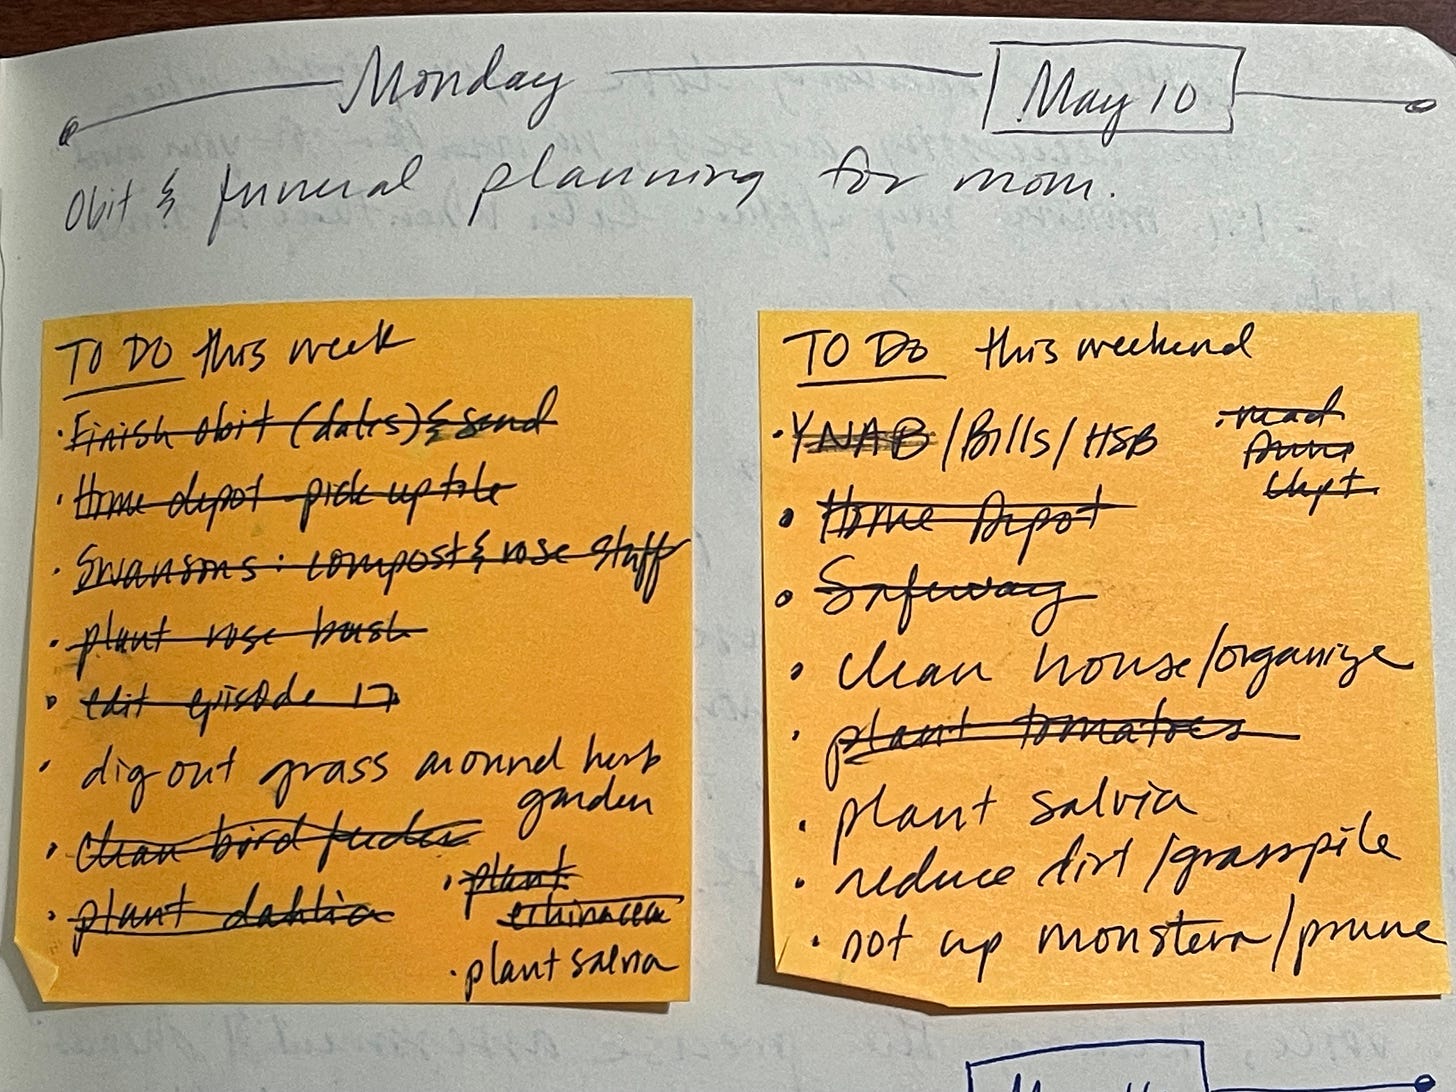 Monday May 10
Obit & funeral planning for mom.
TO DO this week
· Finish obit (dates) & send
· Home depot - pick up tile
· Swansons: compost & rose stuff
· plant rose bush
· edit episode 17
· dig out grass around herb
garden
· clean bird feeder
· plant dahlia
· plant
echinacea
· plant salvia
TO DO this weekend
· YNAB / Bills / HSB
· read
chpt.
· Home Depot
· Safeway
· clean house/organize
· plant tomatoes
· plant salvia
· reduce dirt/grass pile
· pot up monstera/prune